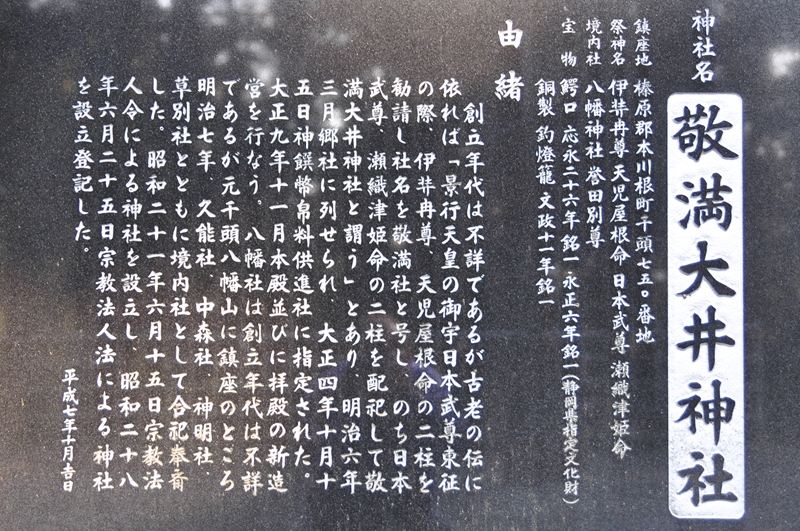 神社名
敬満大井神社
鎮座地 榛原郡本川根町千頭七五〇番地
祭神名 伊弉冉尊 天児屋根命 日本武尊 瀬織津姫命
境内社 八幡神社 誉田別尊
宝物 鰐口 応永二十六年銘一 永正六年銘一(静岡県指定文化財)
銅製 釣燈籠 文政十一年銘一
由緒
創立年代は不詳であるが古老の伝に
依れば「景行天皇の御宇日本武尊東征
の際、伊弉冉尊、天児屋根命の二柱を
勧請し社名を敬満社と号し、のち日本
武尊、瀬織津姫命の二柱を配祀して敬
満大井神社と謂う」とあり、明治六年
三月郷社に列せられ、大正四年十月十
五日神饌幣帛料供進社に指定された。
大正九年十一月本殿並びに拝殿の新造
営を行なう。八幡社は創立年代は不詳
であるが元千頭八幡山に鎮座のところ
明治七年、久能社、中森社、神明社、
草別社とともに境内社として合祀奉斎
した。昭和二十一年六月十五日宗教法
人令による神社を設立し、昭和二十八
年六月二十五日宗教法人法による神社
を設立登記した。
平成七年十月吉日